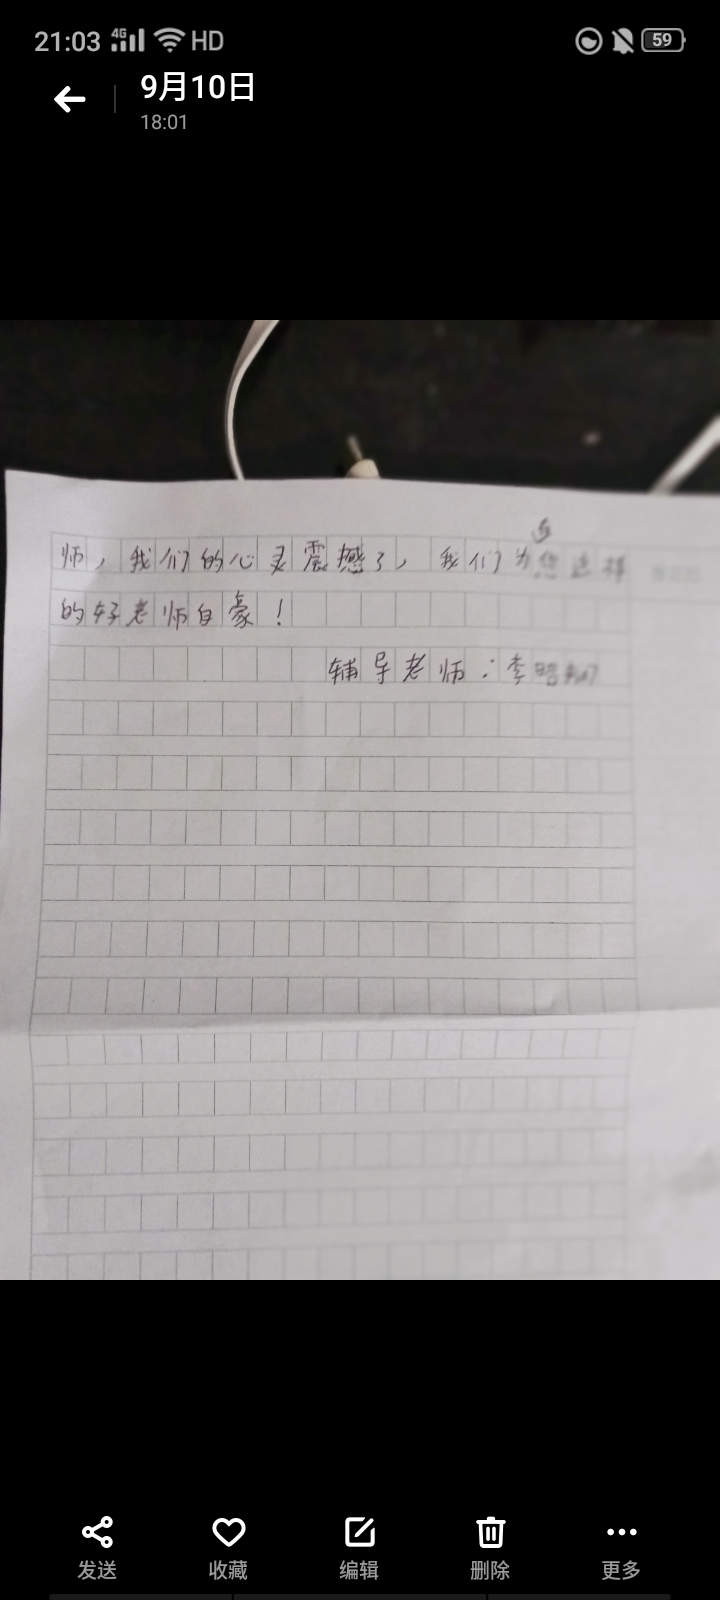 21:03 4G HD 59
9月10日
18:01
师，我们的心灵震撼了，我们为您这样
的好老师自豪！
辅导老师：李
发送 收藏 编辑 删除 更多